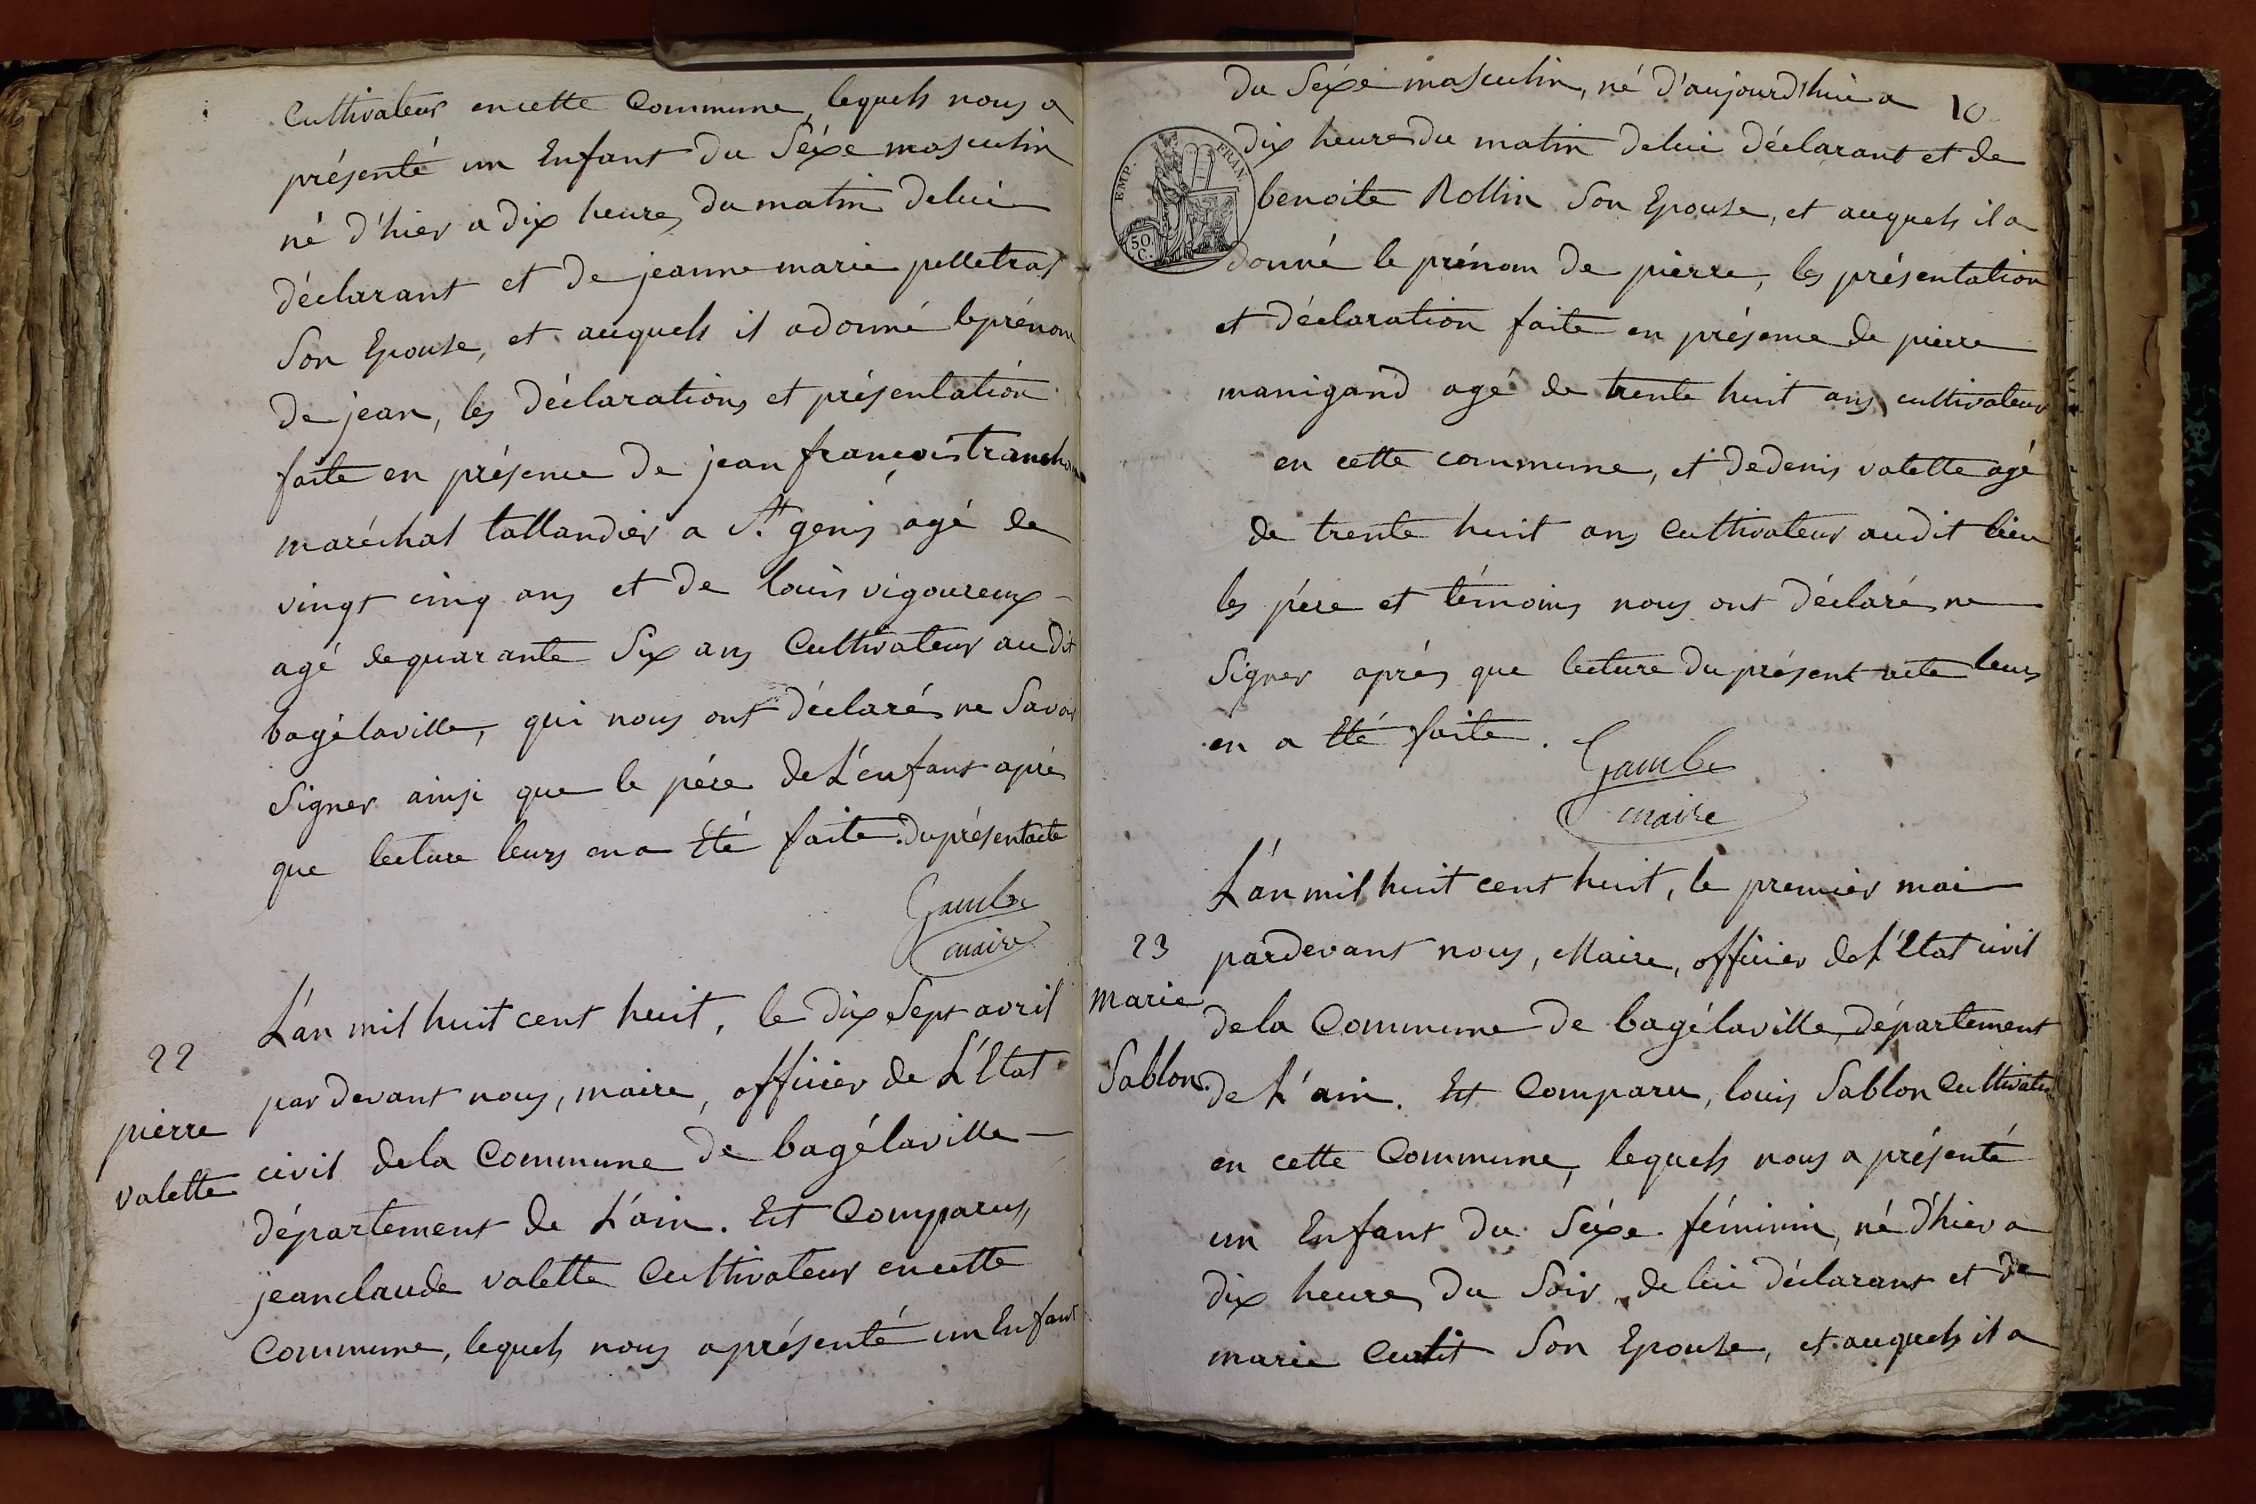 Cultivateur encette Commune, lequels nous a
présenté un Enfant du Séxe masculin
né d'hier a dix heures du matin delui
déclarant et de jeanne marie pelletras
Son Epouse, et auquels il adonné leprénom
de jean, les déclarations et présentation
faite en présence de jean françois tranchan
maréchal tallandier a St. genis agé de
vingt cinq ans et de louis vigoureux
agé dequarante Six ans Cultivateur audit
bagélaville, qui nous ont déclarés ne Savoir
Signer ainsi que le pére de L'enfant aprés
que lecture leurs ena Eté faite. duprésentacte
Gambe
maire
22
pierre
valette
L'an mil huit cent huit, le dix Sept avril
par devant nous, maire, officier de L'Etat
civil dela Commune de bagélaville
département de L'ain. Est Comparus,
jeanclaude valette Cultivateur encette
Commune, lequels nous aprésenté un Enfant
10
du Séxe masculin, né d'aujourd'hui a
dix heures du matin delui déclarant et de
benoite Rollin Son Epouse, et auquels il a
donné le prénom de pierre, les présentation
et déclaration faite en présence de pierre
manigand agé de trente huit ans cultivateur
en cette commune, et dedenis valette agé
de trente huit ans Cultivateur audit lieu
les pére et témoins nous ont déclarés ne
Signer aprés que lecture du présent acte leurs
en a Eté faite.
Gambe
maire
EMP.
FRAN.
50
C.
23
marie
Sablon.
L'an mil huit cent huit, le premier mai
pardevant nous, Maire, officier de L'Etat civil
dela Commune de bagélaville, département
de L'ain. Est Comparu, louis Sablon Cultivateur
en cette Commune, lequels nous a présenté
un Enfant du Séxe féminin, né d'hier a
dix heures du Soir, de lui déclarant et de
marie Curtit Son Epouse, et auquels il a